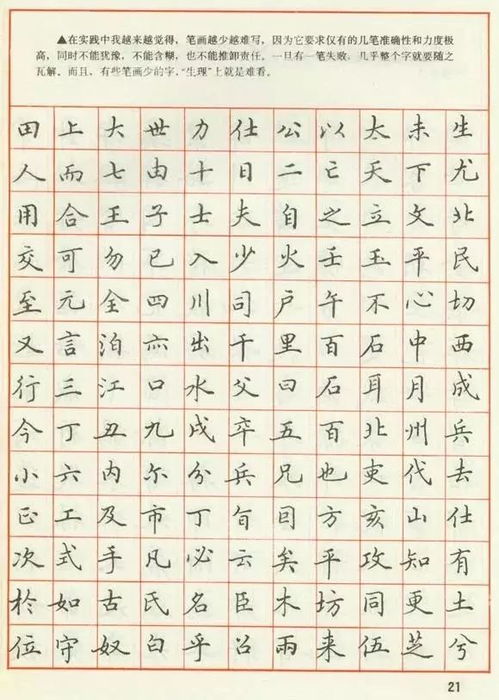 ▲在实践中我越来越觉得，笔画越少越难写，因为它要求仅有的几笔准确性和力度极
高，同时不能犹豫，不能含糊，也不能推卸责任，一旦有一笔失败，几乎整个字就要随之
瓦解。而且，有些笔画少的字，“生理”上就是难看。
田上大世力仕公以太未生
人而七由十日二亡天下尤
用合王子士夫自之立文北
交可勿已入少火壬玉平民
至元全四川司户午不心切
又言泊六出千里百石中西
行三江口水父曰石耳月成
今丁丑九戌卒五百北州兵
小六内尔分兵兄也吏代去
正工及市丁旨回方亥山仕
次式手凡必云矣平攻知有
於如古氏名臣木坊同更土
位守奴白乎召雨来伍芝兮
21